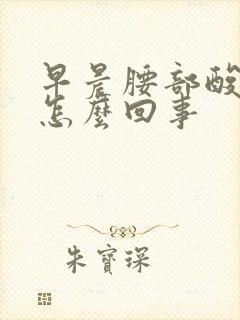 早晨腰部酸
怎麼回事
朱寶琛